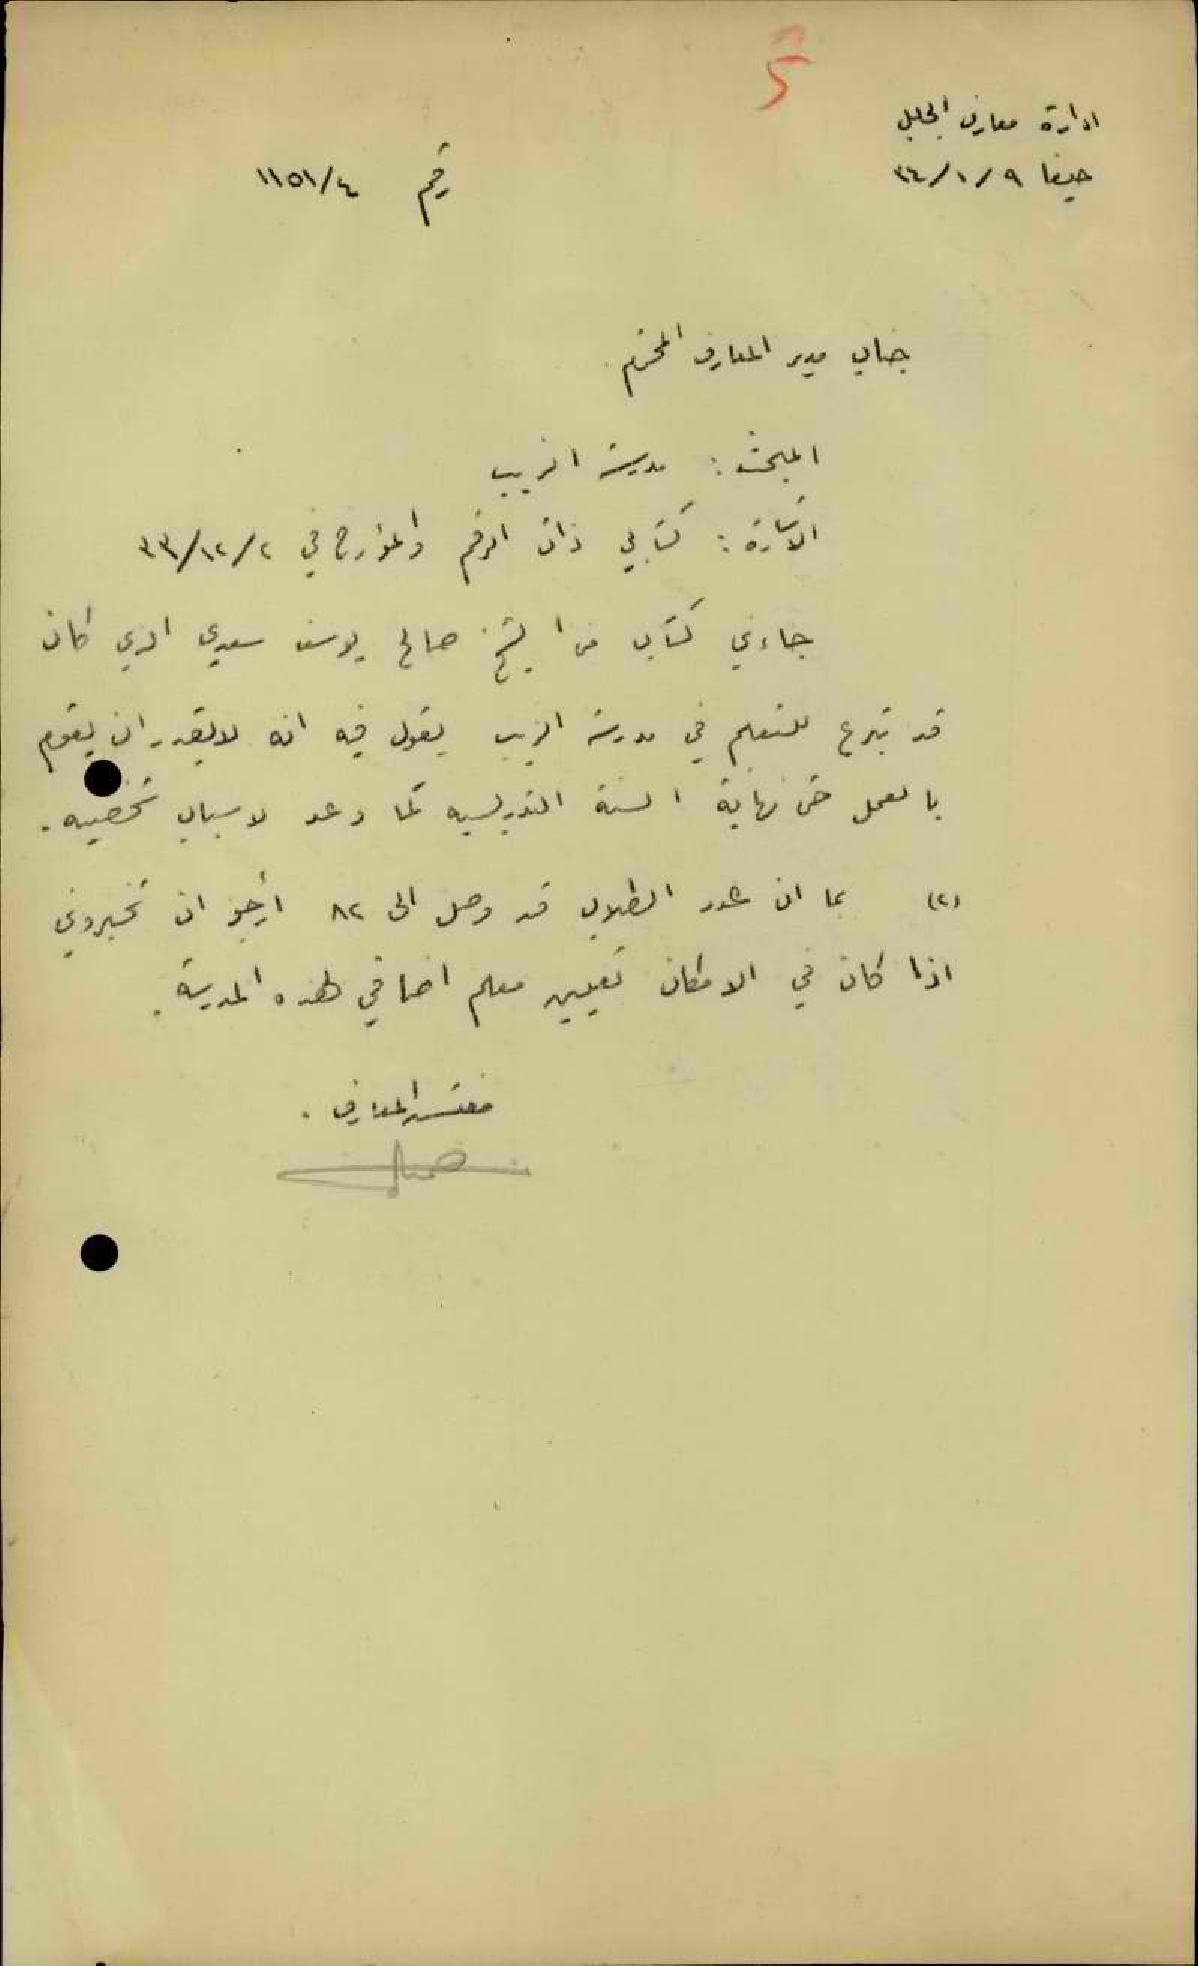 ادارة معارف الجليل
حيفا ٩/١/٣٤
رقم ١١٥١/٤
جناب مدير المعارف المحترم
المبحث : مدرسة الزيب
الاشارة : كتابي ذات الرقم والمؤرخ في ٢/١٢/٣٣
جاءني كتاب من الشيخ صالح يوسف سعدي الذي كان
قد تبرع للتعليم في مدرسة الزيب يقول فيه انه لا يقدر ان يقوم
بالعمل حتى نهاية السنة التدريسيه كما وعد لاسباب شخصيه .
(٢) بما ان عدد الطلاب قد وصل الى ٨٢ أرجو ان تخبروني
اذا كان في الامكان تعيين معلم اضافي لهذه المدرسة .
مفتش المعارف .